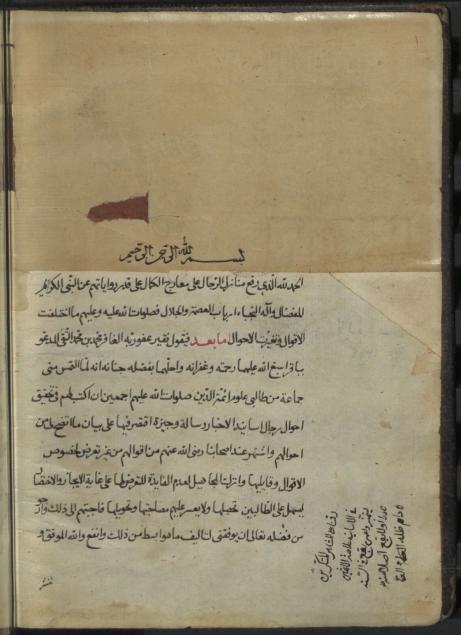 بسم الله الرحمن الرحيم
الحمد لله الذي رفع منازل الرجال على معارج الكمال على قدر رواياتهم عن النبي الكريم
المفضال وآله النجباء ارباب العصمة والجلال فصلوات الله عليه وعليهم ما اختلفت
الاقوال وتغيرت الاحوال اما بعد فيقول فقير عفو ربه الغافر محمد بن محمد التقي المدعو
بباقر اسبغ الله عليهما رحمته وغفرانه واحلهما بفضله جنانه انه لما التمس مني
جماعة من طالبي علوم ائمة الدين صلوات الله عليهم اجمعين ان اكتب لهم في تحقيق
احوال رجال اسانيد الاخبار رسالة وجيزة اقتصر فيها على بيان ما اتضح لي من
احوالهم واشتهر عند اصحابنا رضي الله عنهم من اقوالهم من غير تعرض لخصوص
الاقوال وقايليها واترك المجاهيل لعدم الفايدة للتعرض لها على غاية الايجاز والاختصار
ليسهل على الطالبين تحصيلها ولا يعسر عليهم مصلحتها وتحويلها فاجبتهم الى ذلك وارجو
من فضله تعالى ان يوفقني لتاليف ما هو ابسط من ذلك وانفع والله الموفق و